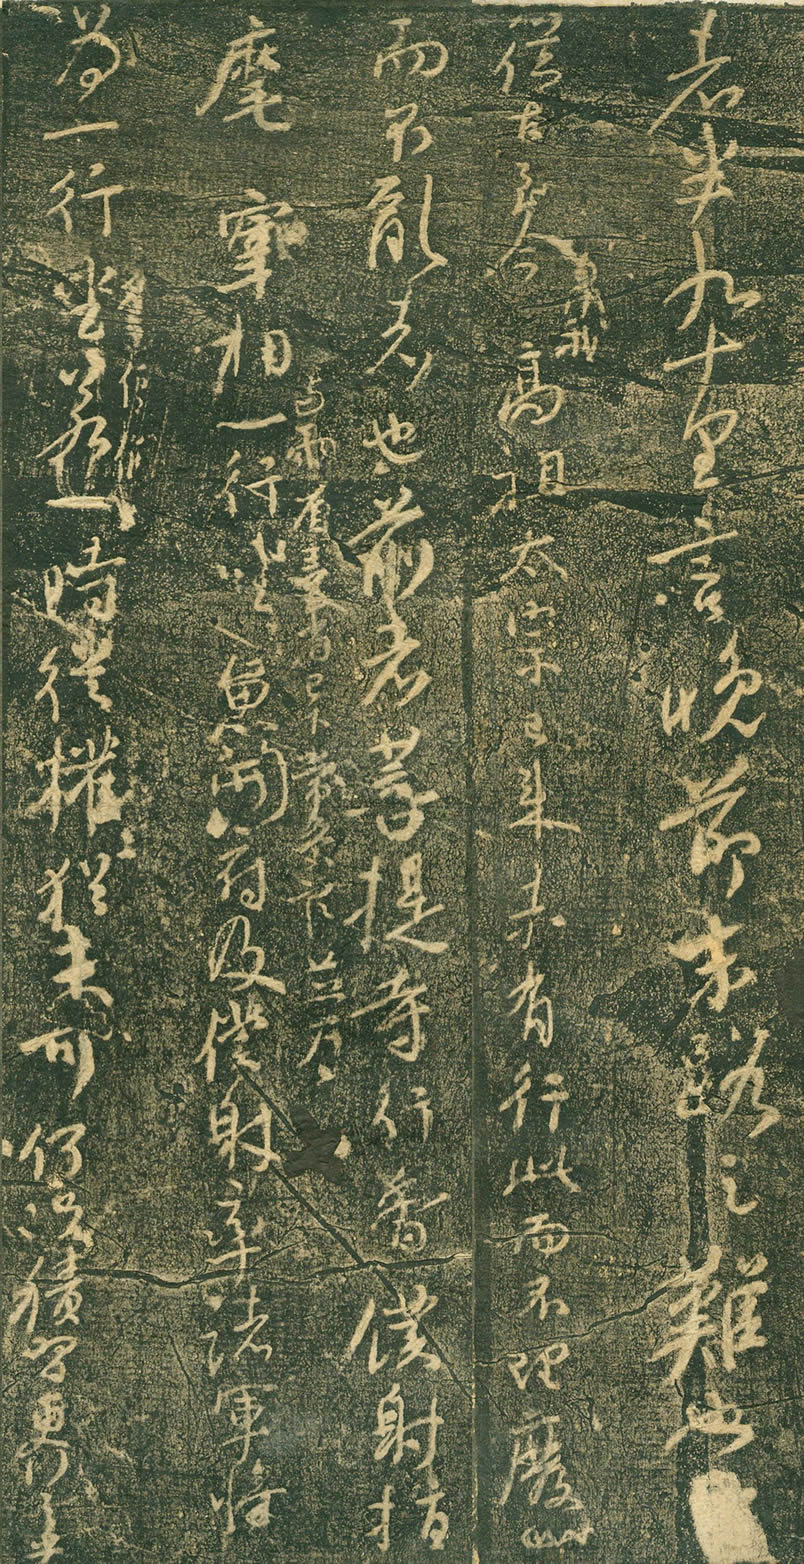 者半九十里言晚節末路之難也
從古至今暨我高祖太宗已來未有行此而不理廢此
而不亂者也前者菩提寺行香僕射指
麾宰相與兩省臺省已下常參官並為
一行坐魚開府及僕射率諸軍將
為一行坐若一時從權猶未可何況積習更行之乎